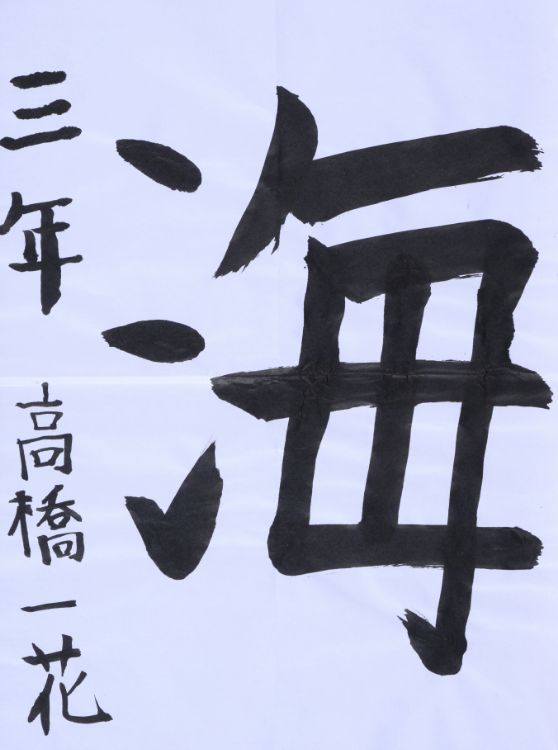 海
三年 高橋一花